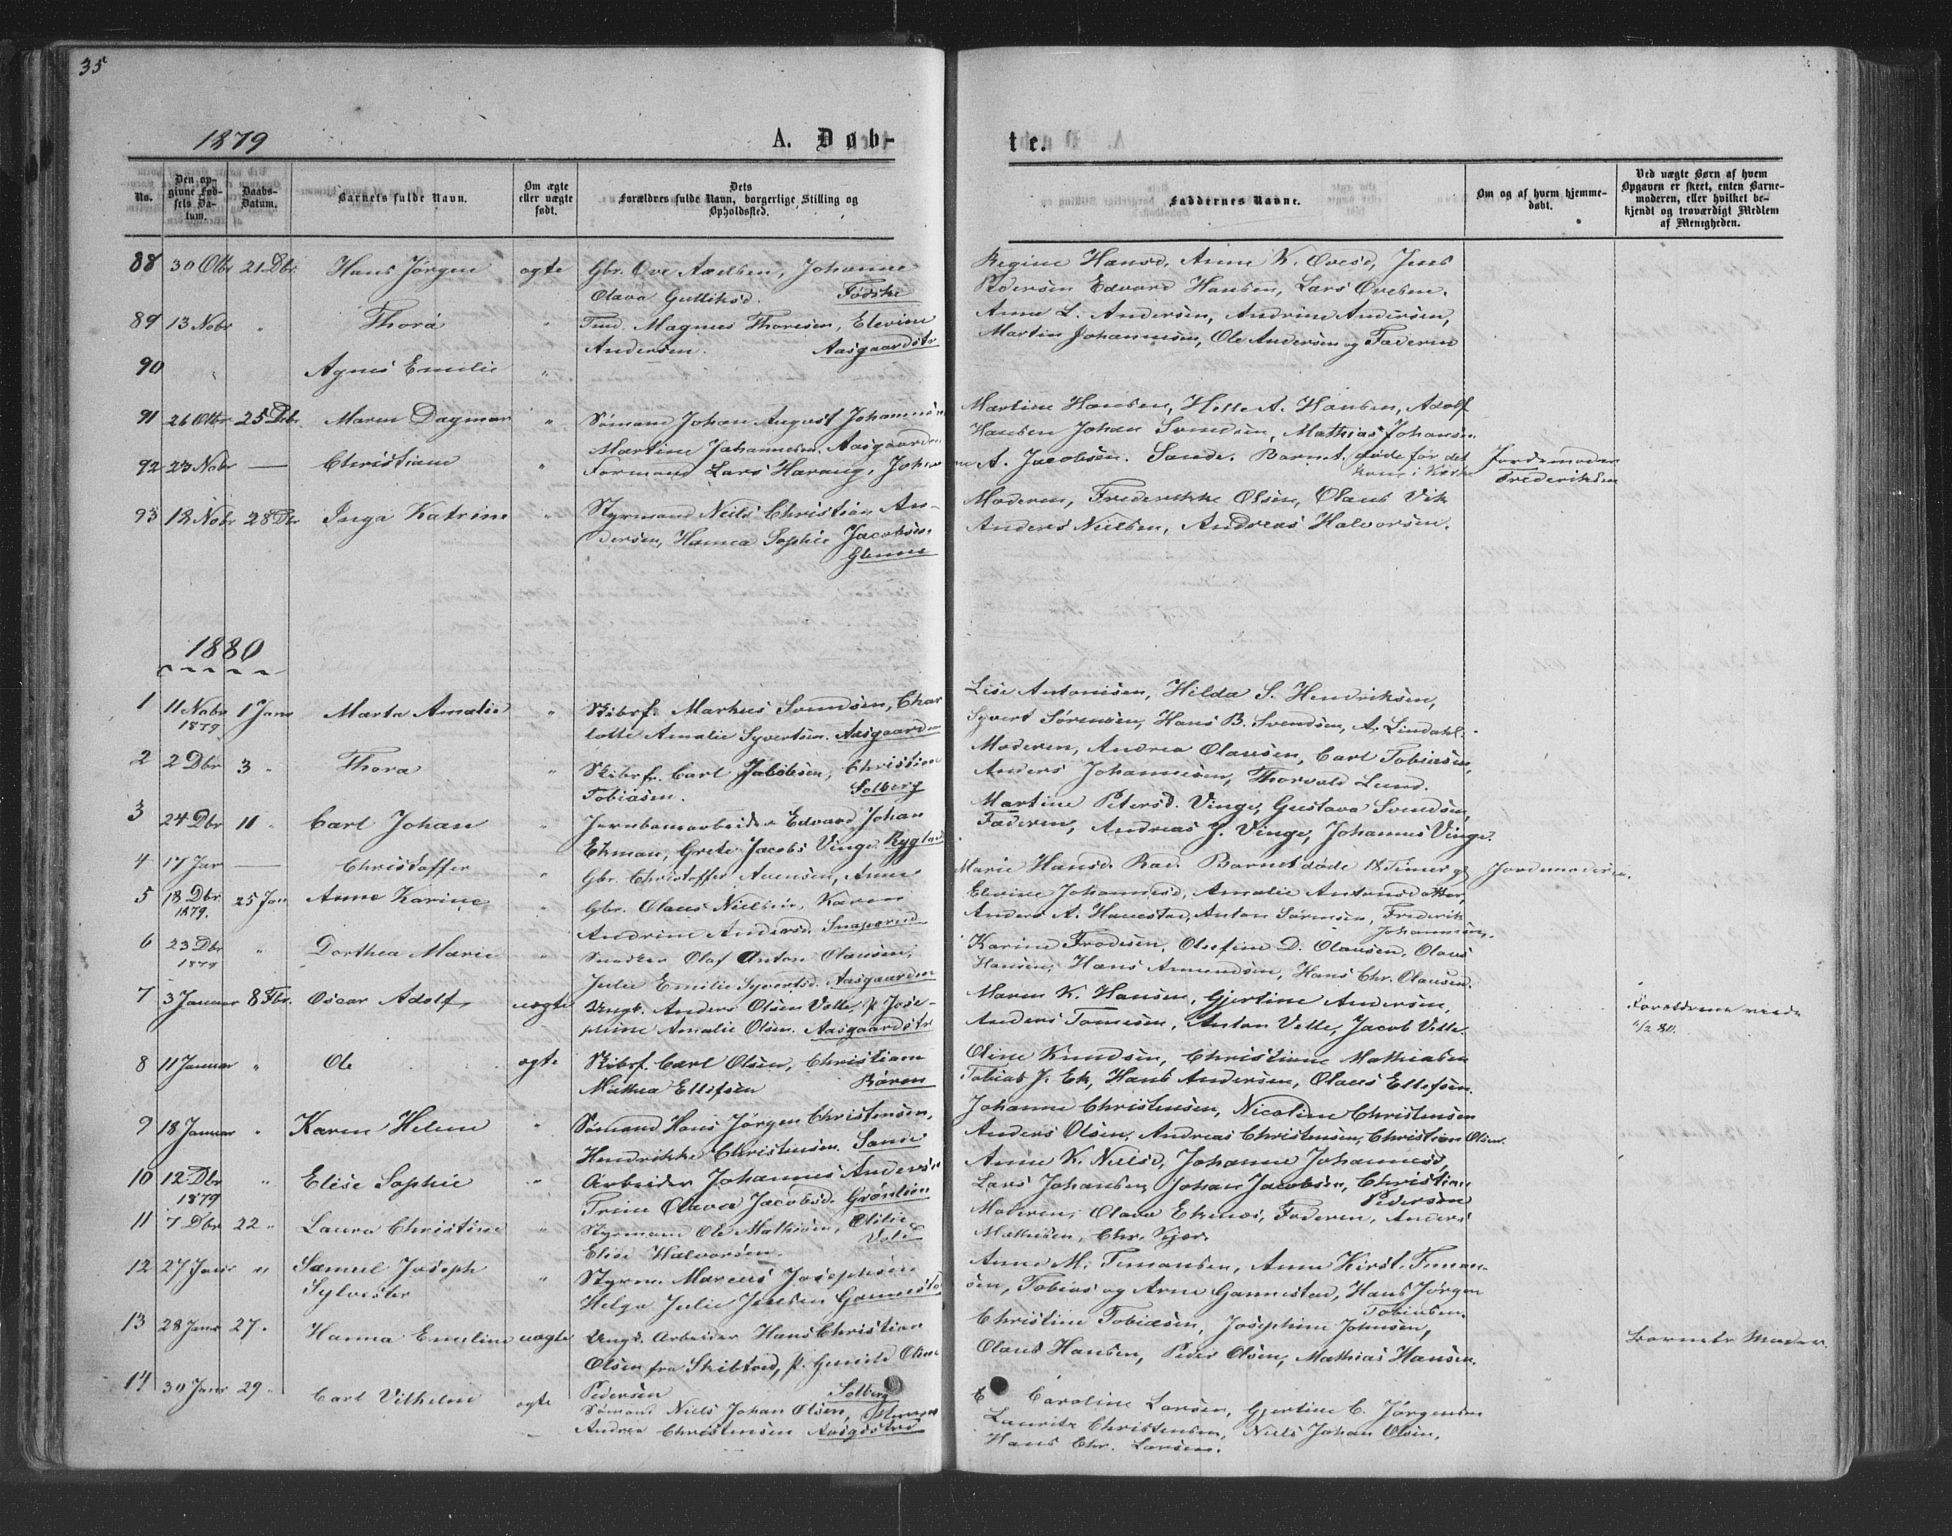 35
1879
A. Døb-
te.
No.
Den op-
givne Fød-
sels Da-
tum.
Daabs-
Datum.
Barnets fulde Navn.
Om ægte
eller uægte
født.
Dets
Forældres fulde Navn, borgerlige Stilling og
Opholdssted.
Faddernes Navne.
Om og af hvem hjemme-
døbt.
Ved uægte Børn af hvem
Opgaven er skeet, enten Barne-
moderen, eller hvilket be-
kjendt og troværdigt Medlem
af Menigheden.
88 30 Otbr 21 Dbr Hans Jørgen ægte Gbr. Ove Axelsen, Johanne Regine Hansd, Anne K. Ovesd, Jens
Olava Gulliksd. Pedersen Edvard Hansen, Lars Ovesen.
89 13 Nobr " Thora " Magnus Thoresen, Elevine Anne L. Andersen, Andrine Andersen,
Andersen. Aasgaardstr Martin Johannesen, Ole Andersen og Faderen
90 " Agnes Emilie "
91 26 Otbr 25 Dbr Maren Dagmar " Sømand Johan August Johannesen Martine Hansen, Helle A. Hansen, Adolf
Martine Johannesen. Aasgaarden Hansen Johan Svendsen, Mathias Johansen
92 23 Nobr — Christiane " Formand Lars Haraug, Johanne A. Jacobsen. Sande. Barnet døde før det Jordemoder
kom i Kirke Frederiksen
93 12 Nobr 28 Dbr Inga Katrine " Styrmand Neils Christian An- Moderen, Frederikke Olsen, Olaus Vik
dersen, Hanna Sophie Jacobsen. Anders Nielsen, Andreas Halvorsen.
Glenne
1880
1 11 Nobr 1 Janr Marta Amalie " Skibsf. Markus Svendsen, Char Lise Antonisen, Hilda S. Hendriksen,
1879 lotte Amalie Syvertsen. Aasgaarden Syvert Sørensen, Hans B. Svendsen, A. Lindahl.
2 2 Dbr 3 " Thora " Skibsf. Carl Jakobsen, Christine Moderen, Andrea Olausen, Carl Tobiasen,
Tobiasen. Solberg Anders Johannesen, Thorvald Lund.
3 24 Dbr 11 " Carl Johan " Jernbanearbeider Edvard Johan Martine Petersd. Vinge, Gustava Svendsen,
Ekman, Grete Jacobs Vinge Faderen, Andreas J. Vinge, Johannes Vinge.
4 17 Jar — Christoffer " Gbr. Christoffer Avensen, Anne Marie Hansd. Rad. Barnet døde 18 Timer g Jordemoderen.
5 18 Dbr 25 Jan Anne Karine Gbr. Olaus Nielsen, Karen Elevine Johannesd, Amalie Antonsdatter,
1879. Andrine Andersd. Anders A. Hanestad, Anton Sørensen, Frederik
Johannesen.
6 23 Dbr " Dorthea Marie " Snedker Olaf Anton Olausen, Karine Frodesen, Olefine D. Olausen, Olaus
1879 Julie Emilie Syvertsd. Aasgaarden Hansen, Hans Amundsen, Hans Chr. Olausend.
7 3 Januar 8 Fbr. Oscar Adolf uægte Ungk. Anders Olsen Velle, p. Jose- Maren K. Hansen, Gjertine Andersen,
phine Amalie Olsen. Aasgaardstr Anders Tomesen, Anton Velle, Jacob Velle. Forældrene viede
80.
8 11 Januar " Ole ægte Skibsf. Carl Olsen, Christiane Oline Knudsen, Christiane Mathiasen
Mathea Ellefsen Børen Tobias J. Ek, Hans Andersen, Olaus Ellefsen.
9 18 Januar " Karen Helene " Sømand Hans Jørgen Christensen, Johanne Christensen, Nicoline Christensen
Hendrikke Christensen. Sande Anders Olsen, Andreas Christensen, Christian Olsen.
10 12 Dbr " Elise Sophie " Arbeider Johannes Andersen Anne K. Nielsd, Johanne Johannesd,
1879 Trine Olava Jacobsd. Grønlien Lars Johansen, Johan Jacobsen, Christian
Pedersen
11 7 Dbr 22 " Laura Christine " Styrmand Ole Mathisen, Otilie Moderen, Olava Ekenæs, Faderen, Anders
Elise Halvorsen. Mathisen, Chr. Kjær.
12 27 Janr " Samuel Joseph " Styrm. Marcus Josephsen Anne M. Timansen, Anne Kirst. Timan-
Sylvester Helga Julie Jensen Gannestad sen, Tobias og Arne Gannestad, Hans Jørgen
Tobiasen.
13 28 Janr 27 " Hanna Emeline uægte Ungk. Arbeider Hans Christian Christine Tobiasen, Josephine Johnsen, Barnets Moder.
Olsen fra Skibtad, p. Gunild Oline Olaus Hansen, Peder Olsen, Mathias Hansen.
Pedersen Solberg
14 30 Janr 29 " Carl Vilhelm ægte Sømand Niels Johan Olsen, Caroline Larsen, Gjertine C. Jørgensen
Andrea Christensen Aasgdstrd Lauritz Christensen, Niels Johan Olsen,
Hans Chr. Larsen.